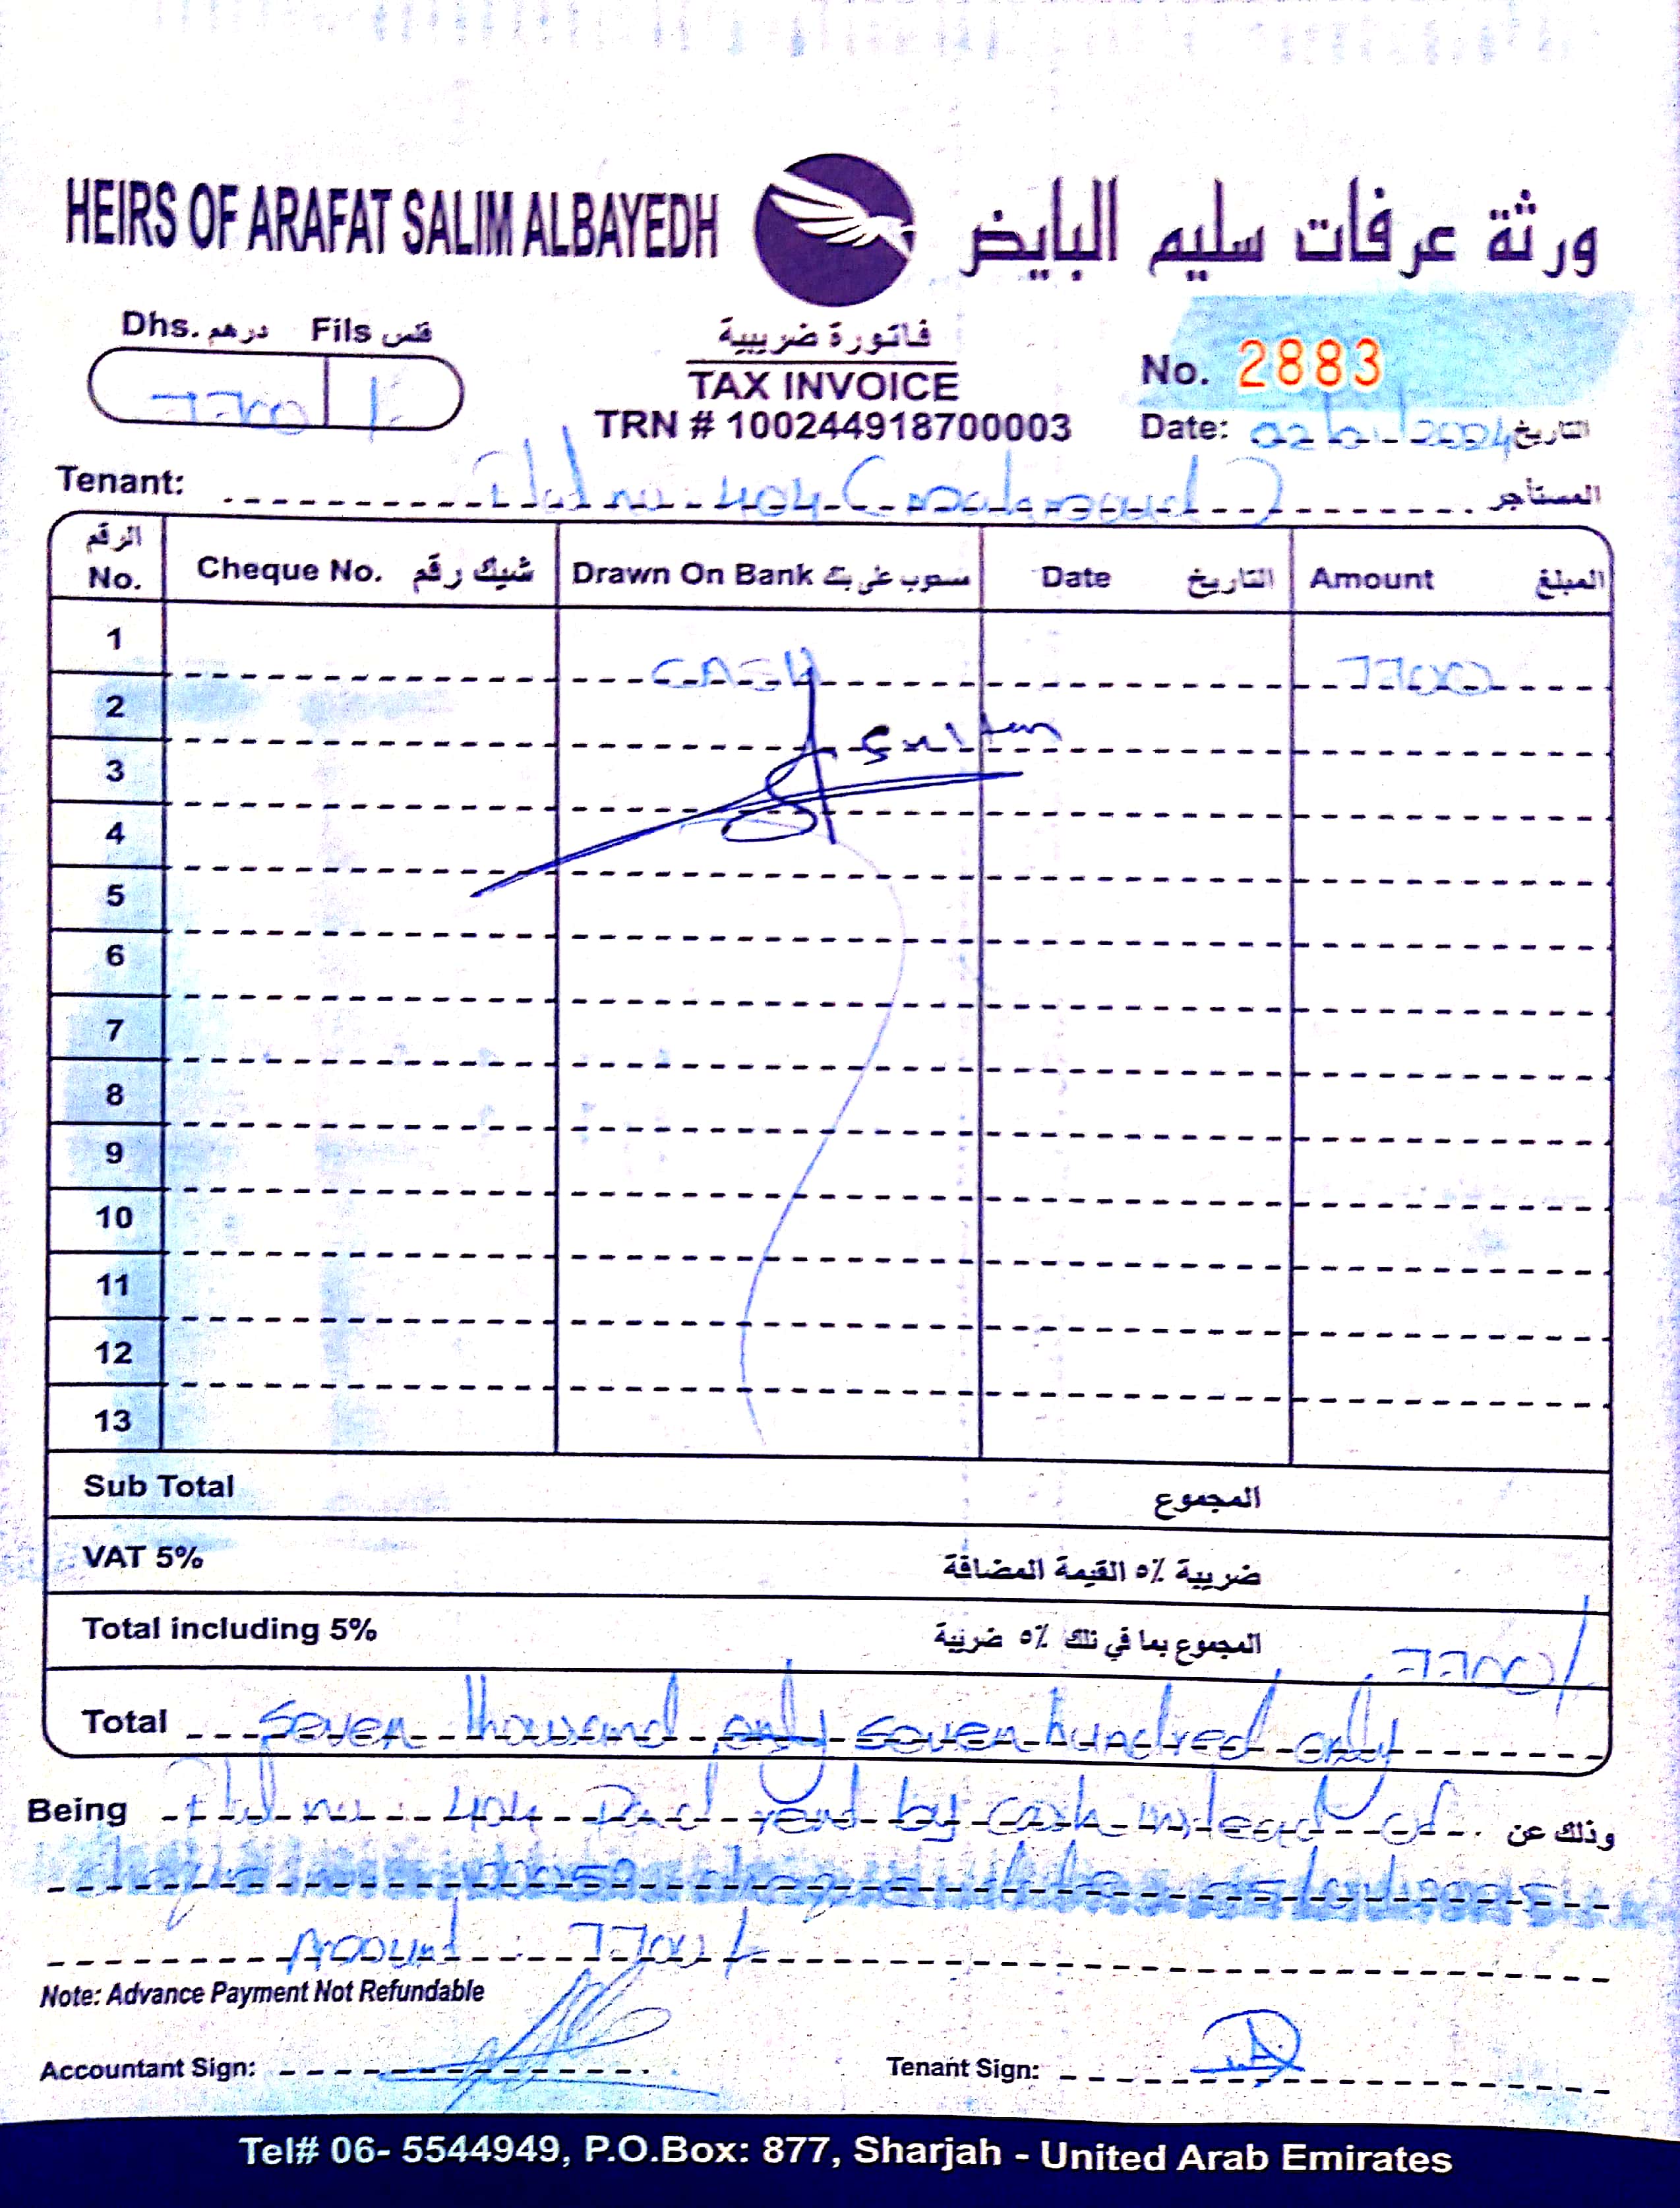 HEIRS OF ARAFAT SALIM ALBAYEDH ورثة عرفات سليم البايض
Dhs. درهم Fils فلس
7700 /-
فاتورة ضريبية
TAX INVOICE
TRN # 100244918700003
No. 2883
Date: 02/01/2024 التاريخ
Tenant: Flat no 404 المستأجر
الرقم No. Cheque No. شيك رقم Drawn On Bank مسحوب على بنك Date التاريخ Amount المبلغ
1 CASH 7700
2 Sultan
3
4
5
6
7
8
9
10
11
12
13
Sub Total المجموع
VAT 5% ضريبة ٥٪ القيمة المضافة
Total including 5% المجموع بما في ذلك ٥٪ ضريبة 7700/
Total Seven thousand only seven hundred only
Being Flat no. 404 Paid rent by cash instead of وذلك عن
Amount 7700/-
Note: Advance Payment Not Refundable
Accountant Sign: Tenant Sign:
Tel# 06- 5544949, P.O.Box: 877, Sharjah - United Arab Emirates